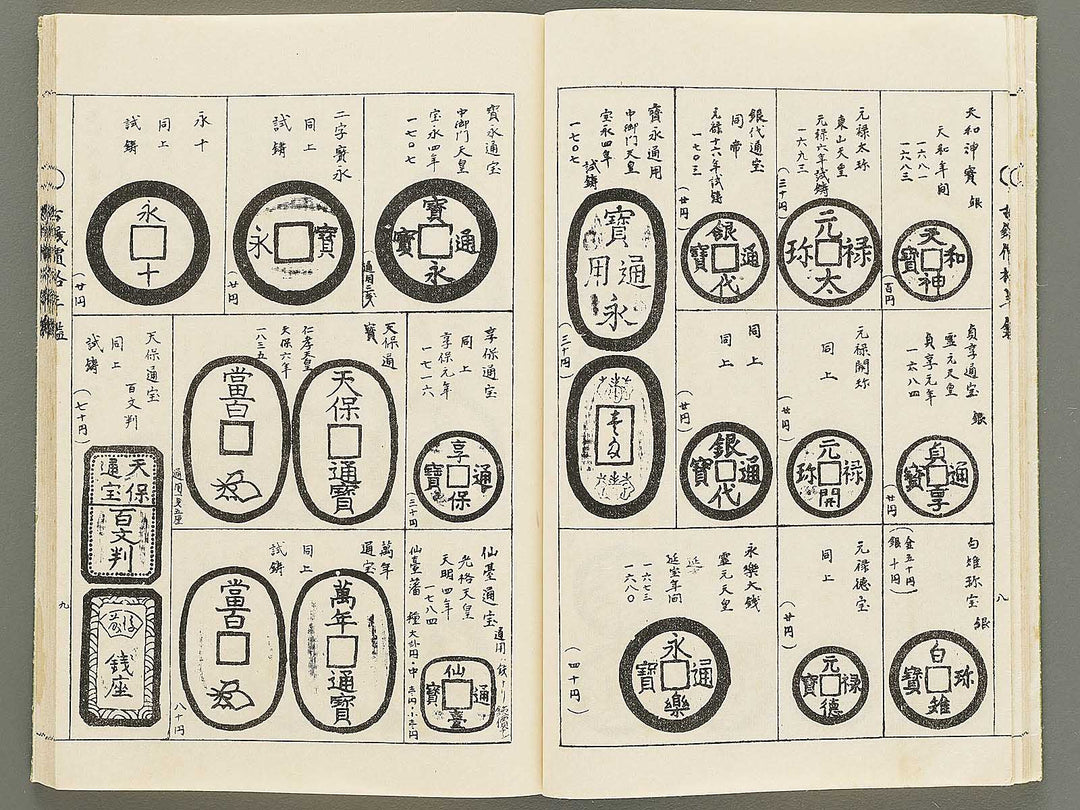 天和神寶 銀
天和年間
一六八一
一六八三
天和神寶
(百円)
元禄太珎
東山天皇
元禄六年試鋳
一六九三
(三十円)
元禄太珎
銀代通宝
同帝
元禄十六年試鋳
一七〇三
(廿円)
銀通代寶
寶永通用
中御門天皇
宝永四年
一七〇七
試鋳
寶通用永
(三十円)
貞享通宝 銀
靈元天皇
貞享元年
一六八四
貞享通寶
(廿円)
元禄開珎
同上
(廿円)
元禄開珎
同上
同上
(廿円)
銀通代寶
珎宝 銀
(金五十円)
(銀〃十円)
白珎寶
元禄德宝
同上
(廿円)
元禄德寶
永樂大銭
靈元天皇
延宝年間
一六七三
一六八〇
永樂通寶
(四十円)
八
寶永通宝
中御門天皇
宝永四年
一七〇七
寶永通寶
二字寳永
同上
試鋳
永寶
(廿円)
永十
同上
試鋳
永十
(廿円)
享保通宝
同上
享保元年
一七一六
享保通寶
(三十円)
天保通寶
仁孝天皇
天保六年
一八三五
天保通寶
當百
天保通宝
同上 百文判
試鋳
(七十円)
天保通宝
百文判
銭座
仙臺通宝
光格天皇
天明四年
一七八四
仙臺藩
仙臺通寶
萬年通宝
同上
試鋳
萬年通寶
當百
八十円
九